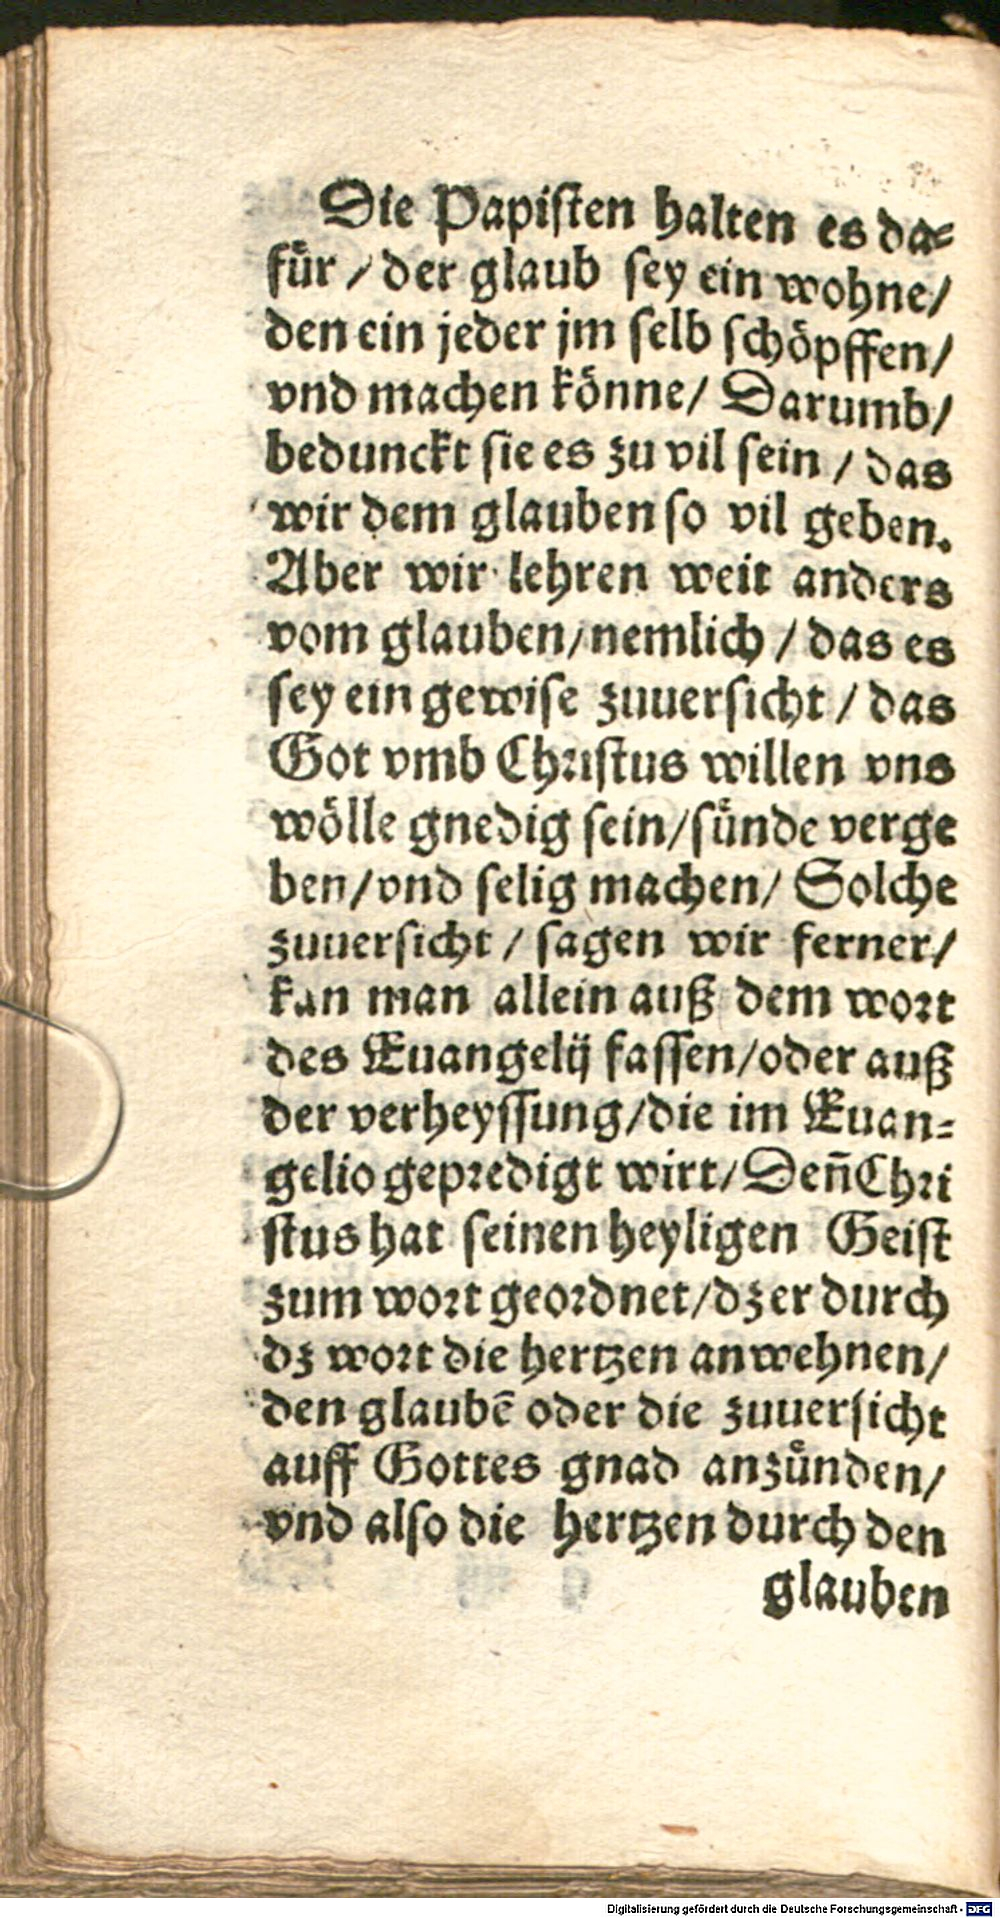 Die Papisten halten es da-
fůr / der glaub sey ein wohne /
den ein jeder jm selb schöpffen /
vnd machen könne / Darumb /
bedunckt sie es zu vil sein / das
wir dem glauben so vil geben.
Aber wir lehren weit anders
vom glauben / nemlich / das es
sey ein gewise zuuersicht / das
Got vmb Christus willen vns
wölle gnedig sein / sünde verge
ben / vnd selig machen / Solche
zuuersicht / sagen wir ferner /
kan man allein auß dem wort
des Euangelij fassen / oder auß
der verheyssung / die im Euan-
gelio gepredigt wirt / Deñ Chri
stus hat seinen heyligen Geist
zum wort geordnet / dz er durch
dz wort die hertzen anwehnen /
den glaubē oder die zuuersicht
auff Gottes gnad anzůnden /
vnd also die hertzen durch den
glauben
Digitalisierung gefördert durch die Deutsche Forschungsgemeinschaft - DFG